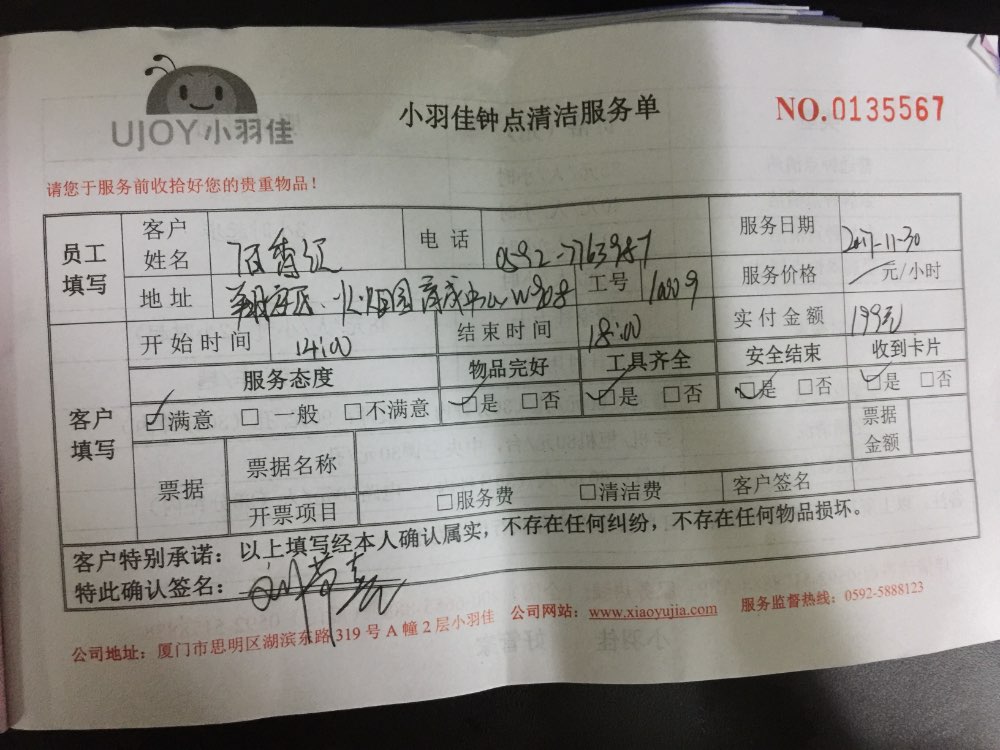 UJOY小羽佳
小羽佳钟点清洁服务单
NO.0135567
请您于服务前收拾好您的贵重物品！
员工填写 客户姓名 电话 0592-7763987 服务日期 2017-11-30
地址 工号 10009 服务价格 元/小时
客户填写 开始时间 14:00 结束时间 18:00 实付金额 199元
服务态度 物品完好 工具齐全 安全结束 收到卡片
☑满意 □一般 □不满意 ☑是 □否 ☑是 □否 ☑是 □否 ☑是 □否
票据 票据名称 票据金额
开票项目 □服务费 □清洁费 客户签名
客户特别承诺：以上填写经本人确认属实，不存在任何纠纷，不存在任何物品损坏。
特此确认签名：
公司地址：厦门市思明区湖滨东路319号A幢2层小羽佳 公司网站：www.xiaoyujia.com 服务监督热线：0592-5888123